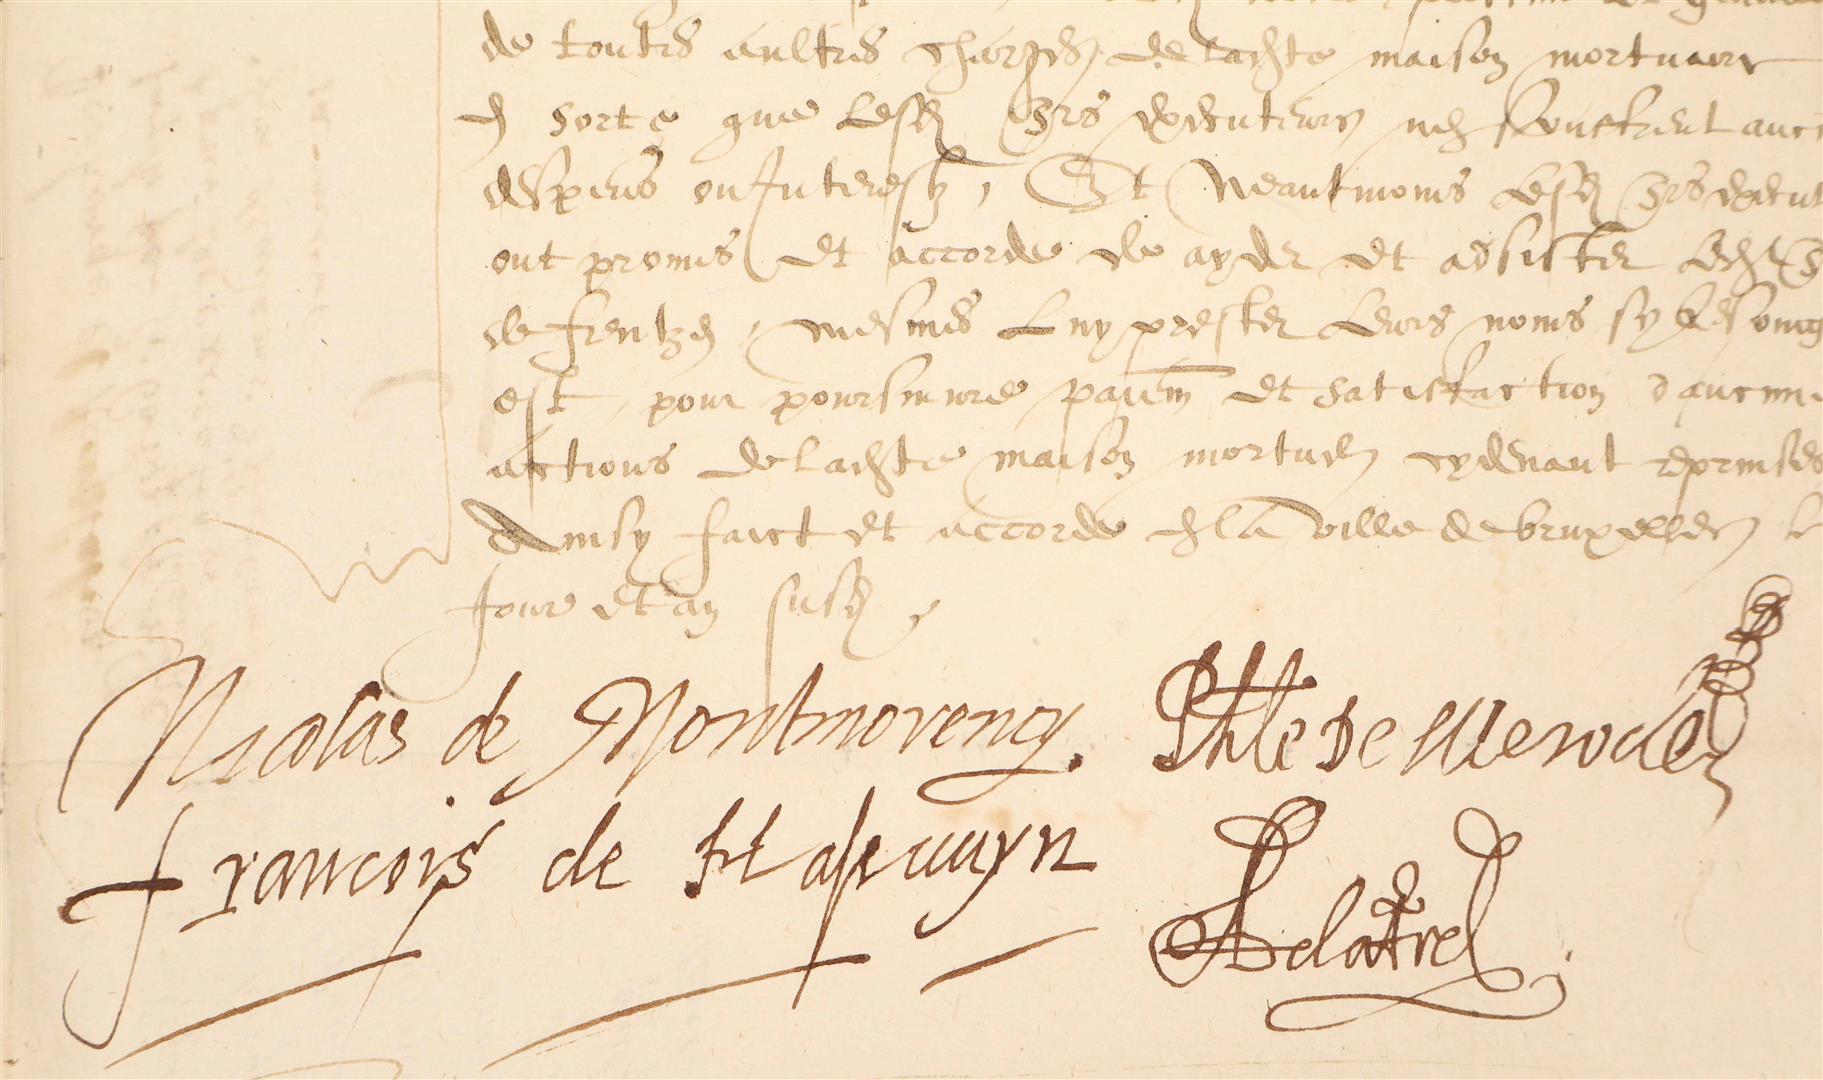 de toutes aultres charges de ladte maison mortuaire
en sorte que lesd Srs executeurs nen soustient auc
despens ou Interestz, Et Neantmoins lesd Srs execut
ont promis et accorde de ayder et assister led Sr
de frentzen, mesmes luy prester leurs noms sy besoing
est, pour poursuivre paiem et satisfaction daucune
actions de ladte maison mortuer cydevant reprinses
Ainsy faict et accorde en la ville de bruxelles le
jour et an susd
Nicolas de Montmorency. Phle de Merode
francois de Halewuyn Delatre